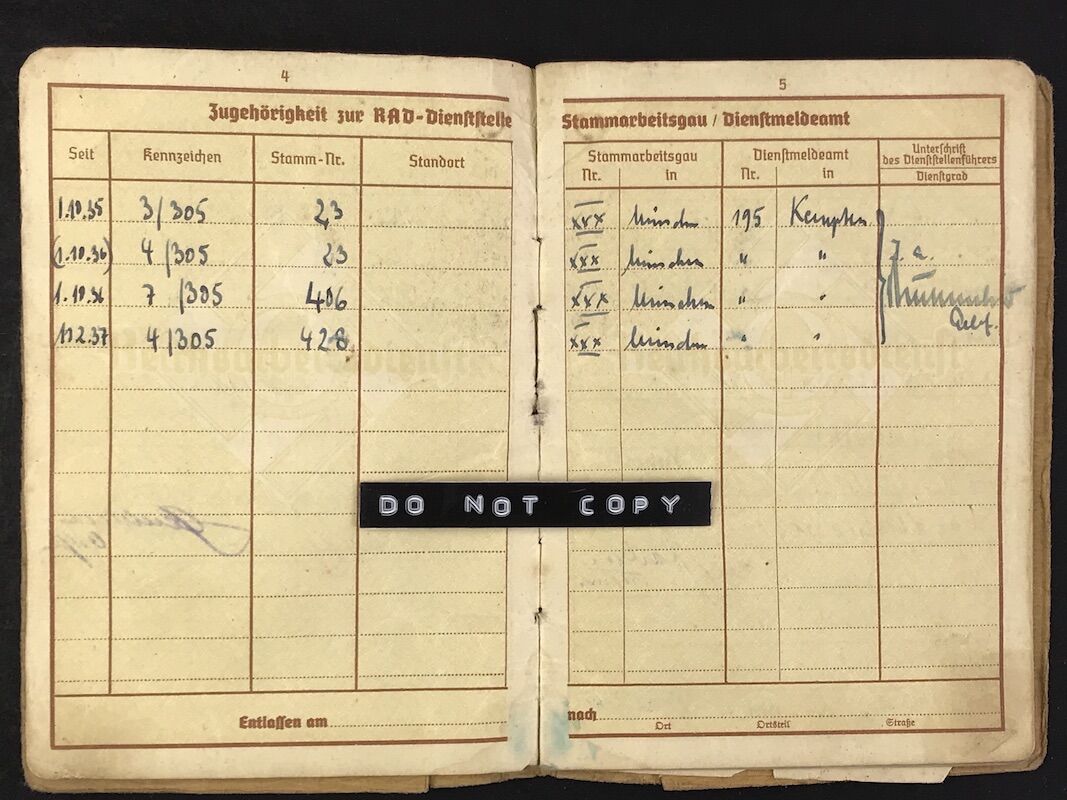 4
Zugehörigkeit zur RAD-Dienststelle
Seit Kennzeichen Stamm-Nr. Standort
1.10.35 3/305 23
(1.10.36) 4/305 23
1.10.36 7/305 406
4/305 428
Entlassen am
5
Stammarbeitsgau / Dienstmeldeamt
Stammarbeitsgau Dienstmeldeamt Unterschrift des Dienststellenführers
Nr. in Nr. in Dienstgrad
XXX München 195 Kempten
XXX München " "
J. a.
XXX München " "
XXX München " "
DO NOT COPY
nach
Ort Ortsteil Straße